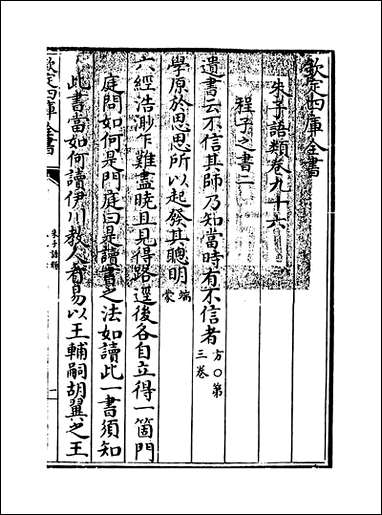 欽定四庫全書
朱子語類卷九十六
程子之書二
遺書云不信其師乃知當時有不信者方〇第三卷
學原於思思所以起發其聰明端蒙
六經浩渺乍難盡曉且見得路逕後各自立得一箇門
庭問如何是門庭曰是讀書之法如讀此一書須知
此書當如何讀伊川教人看易以王輔嗣胡翼之王
欽定四庫全書
朱子語類
一